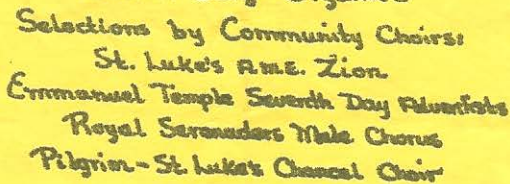 Selections by Community Choirs:
St. Luke's A.M.E. Zion
Emmanuel Temple Seventh Day Adventists
Royal Serenaders Male Chorus
Pilgrim-St. Luke's Chancel Choir